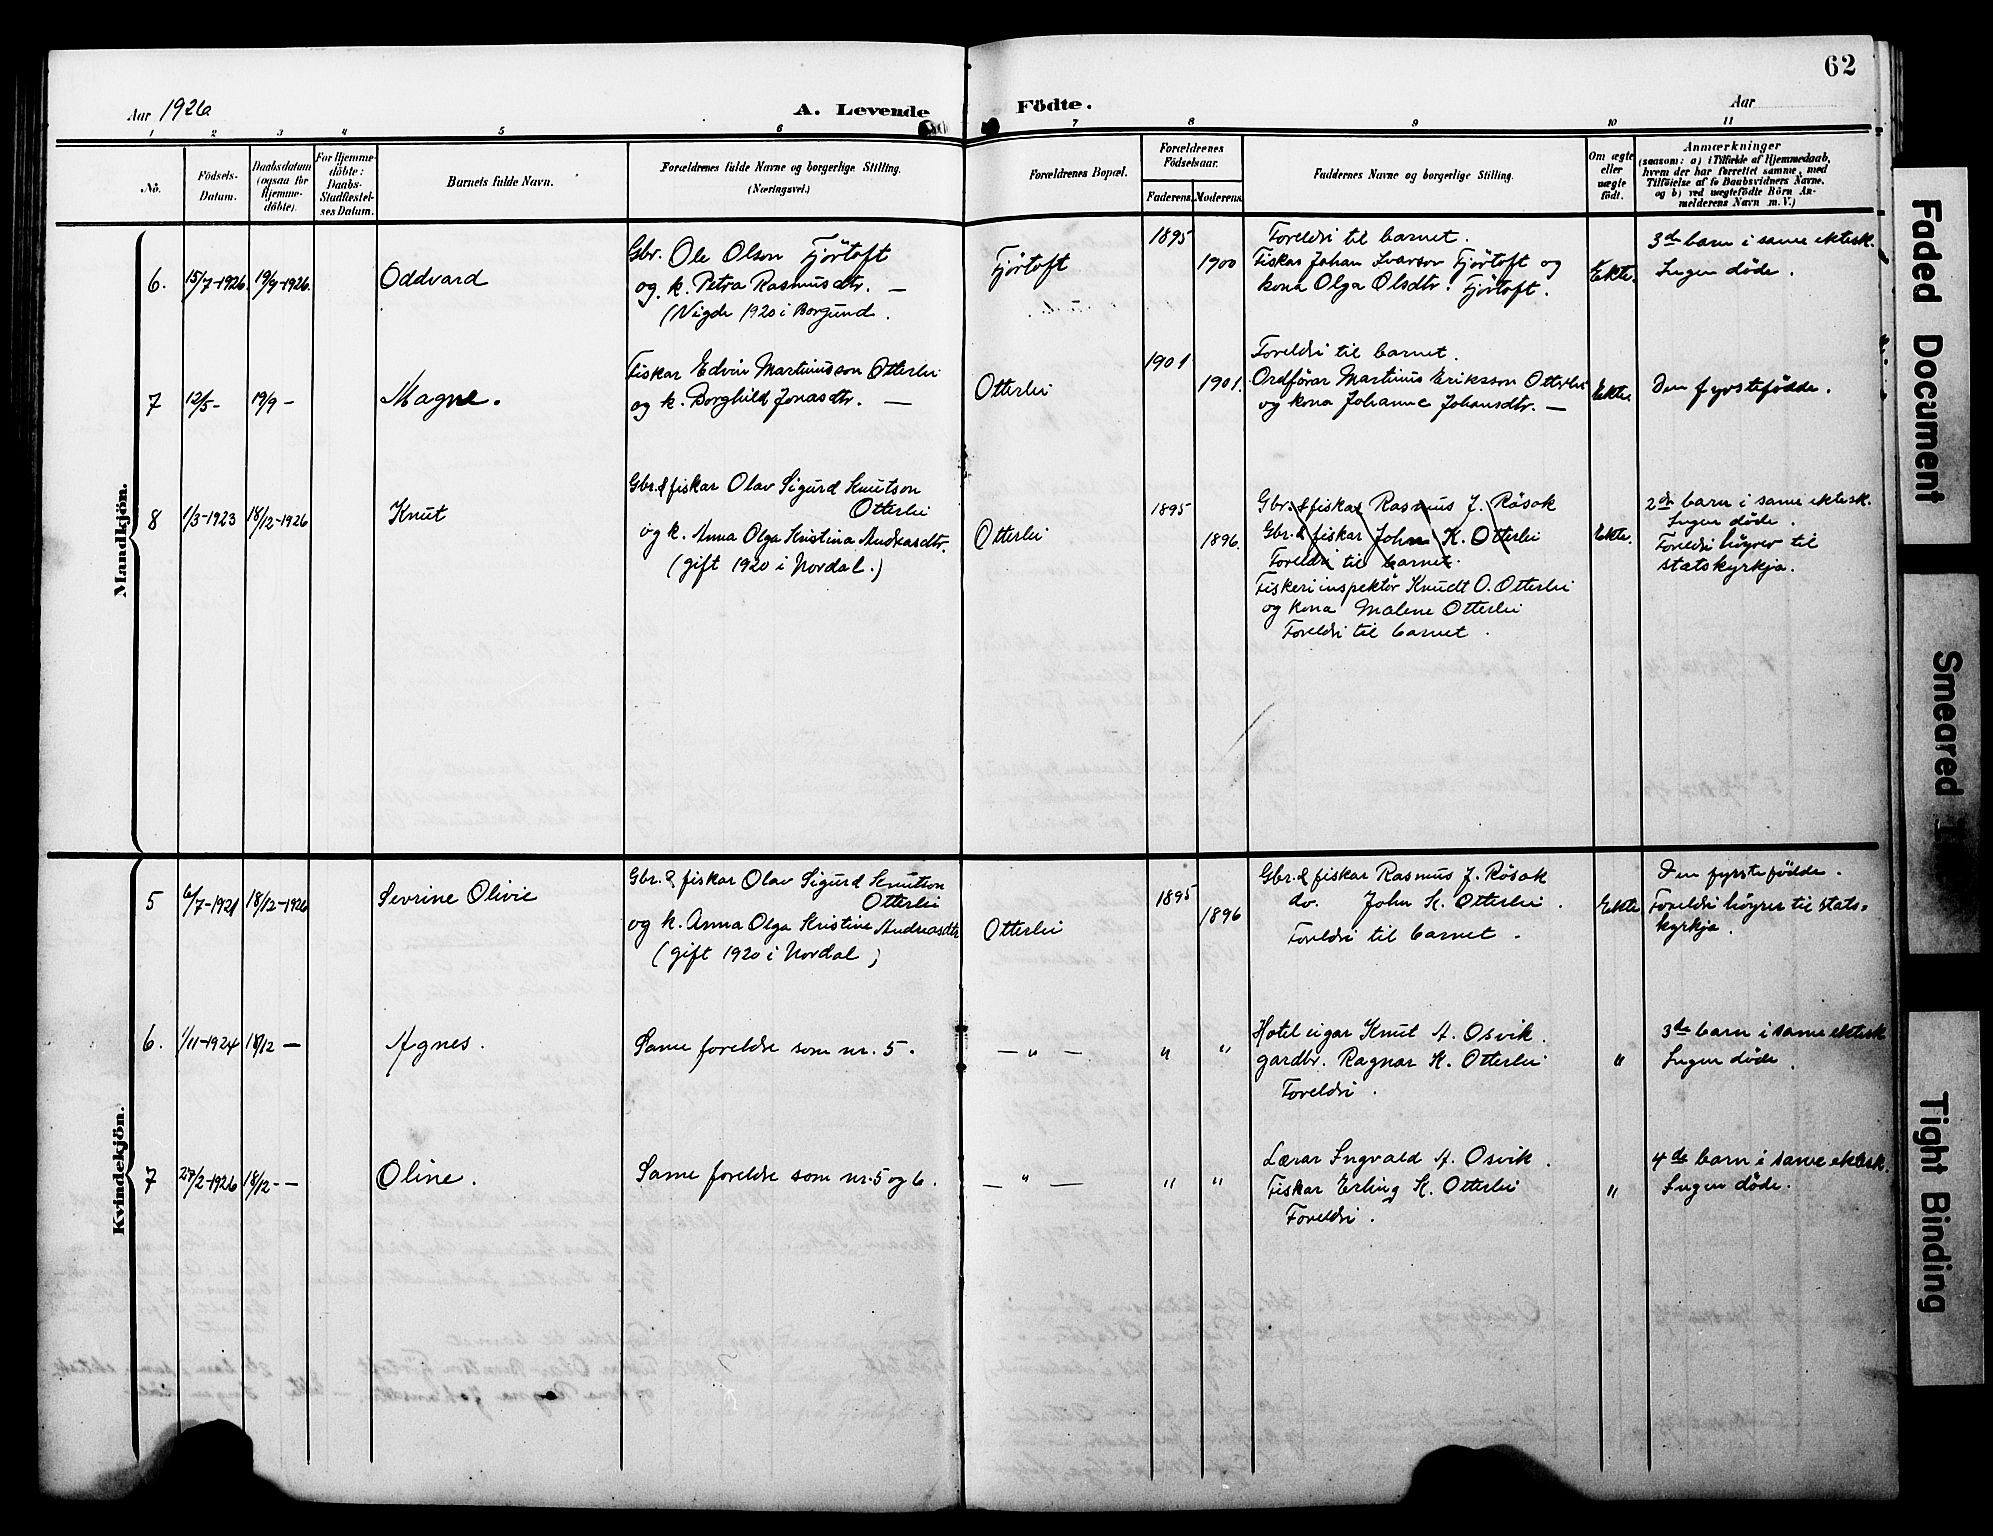 62
Aar 1926
A. Levende
Födte.
Aar
1 2 3 4 5 6 7 8 9 10 11
No.
Födsels-
Datum.
Daabsdatum
(ogsaa for
Hjemme-
döbte).
For Hjemme-
döbte:
Daabs-
Stadfæstel-
ses Datum.
Barnets fulde Navn.
Forældrenes fulde Navne og borgerlige Stilling.
(Næringsvei.)
Forældrenes Bopæl.
Forældrenes
Födselsaar.
Faderens.
Moderens.
Faddernes Navne og borgerlige Stilling.
Om ægte
eller
uægte
födt.
Anmærkninger
(saasom: a) i Tilfælde af Hjemmedaab,
hvem der har forrettet samme, med
Tilföielse af to Daabsvidners Navne,
og b) ved uægtefödte Börn An-
melderens Navn m.V.)
Mandkjön.
6. 15/7-1926. 19/9-1926.
Oddvard
Gbr. Ole Olson Fjörtoft
og k. Petra Rasmusdtr. —
(Vigde 1920 i Borgund.
Fjörtoft
1895
1900
Foreldri til barnet.
Fiskar Johan Ivarson Fjörtoft og
kona Olga Olsdtr. Fjörtoft.
Ekte.
3de barn i same ektesk.
Ingen døde.
7 12/5- 19/9 -
Magne.
Fiskar Edvin Martinusson Otterlei
og k. Borghild Jonasdtr. —
Otterlei
1901
1901.
Foreldri til barnet.
Ordförar Martinus Eriksson Otterlei
og kona Johanne Johansdtr. —
Ekte.
Den fyrstefödde.
8 1/3-1923 18/12-1926
Knut
Gbr. & fiskar Olav Sigurd Knutson
Otterlei
og k. Anna Olga Kristina Andreasdtr.
(gift 1920 i Nordal.)
Otterlei
1895
1896.
Gbr. & fiskar Rasmus J. Røsok
Gbr. & fiskar John K. Otterlei
Foreldri til barnet.
Fiskeriinspektör Knudt O. Otterlei
og kona Malene Otterlei
Foreldri til barnet.
Ekte.
2de barn i same ektesk.
Ingen døde.
Foreldri höyrer til
statskyrkja.
Kvindekjön.
5 6/7-1921 18/12-1926
Sevrine Olivie
Gbr. & fiskar Olav Sigurd Knutson
Otterlei
og k. Anna Olga Kristine Andreasdtr
(gift 1920 i Nordal)
Otterlei
1895
1896
Gbr. & fiskar Rasmus J. Røsok
do. John K. Otterlei.
Foreldri til barnet.
Ekte
Den fyrstefödde.
Foreldri höyrer til stats-
kyrkja.
6. 1/11-1924 18/12 —
Agnes.
Same foreldre som nr. 5.
— " —
" "
Hotel eigar Knut A. Osvik.
gardbr. Ragnar K. Otterlei
Foreldri.
"
3de barn i same ektesk
Ingen døde.
7 27/2-1926 18/12 --
Oline.
Same foreldre som nr. 5 og 6.
— " —
" "
Lærar Ingvald A. Osvik.
Fiskar Erling K. Otterlei
Foreldri.
"
4de barn i same ektesk.
Ingen døde.
Faded Document
Smeared I
Tight Binding